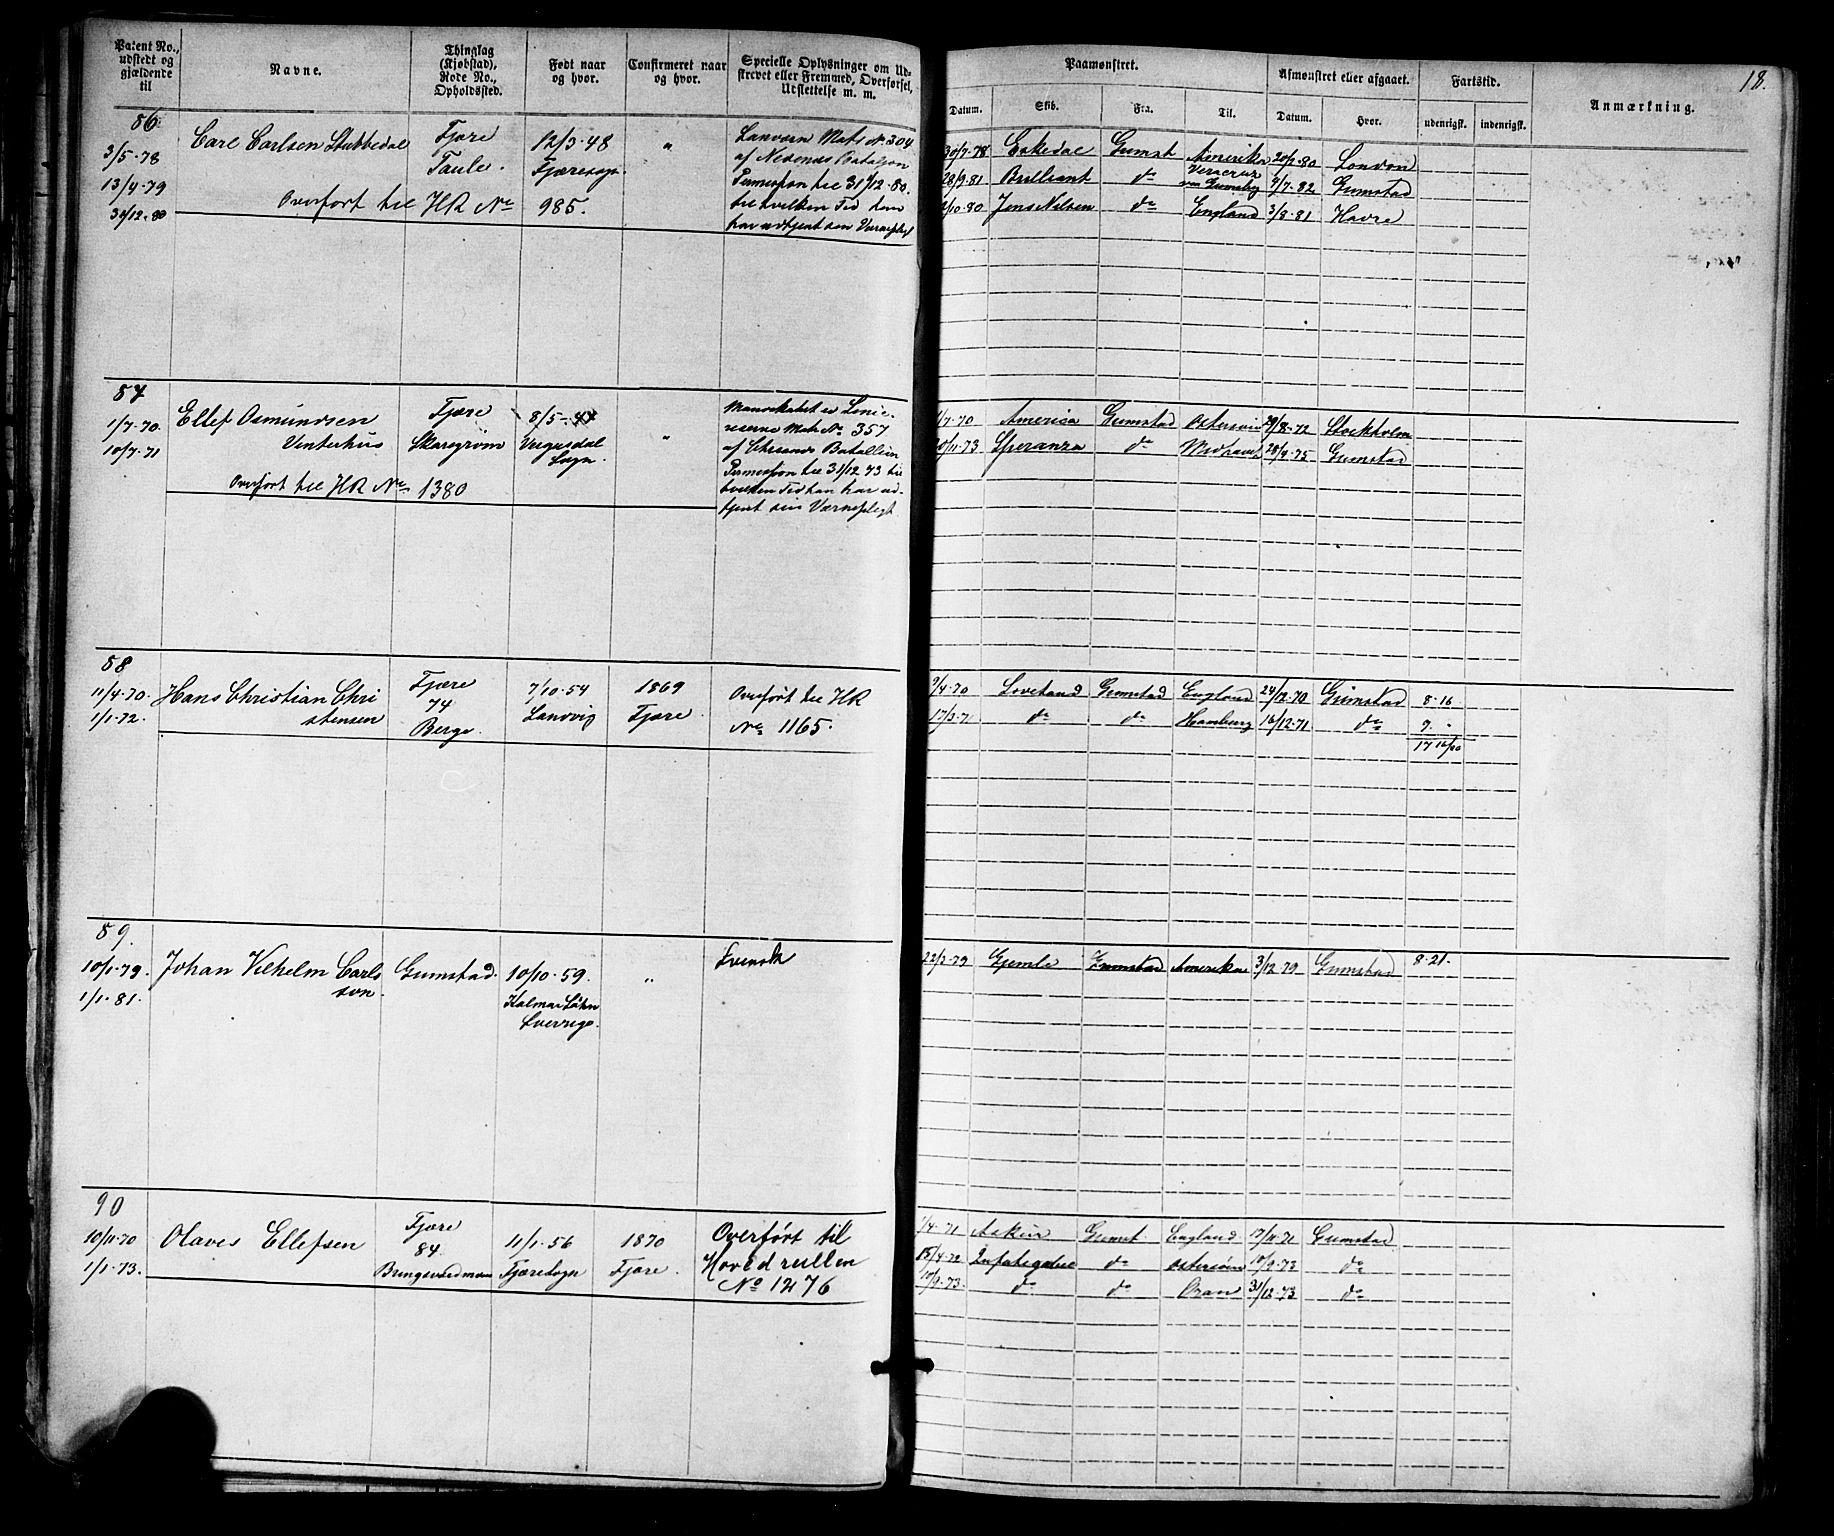 18.
Patent No., udstedt og gjældende til
Navne.
Thinglag (Kjøbstad), Rode No., Opholdssted.
Født naar og hvor.
Confirmeret naar og hvor.
Specielle Oplysninger om Udskrevet eller Fremmed, Overførsel, Udslettelse m. m.
Paamønstret.
Afmønstret eller afgaaet.
Fartstid.
Anmærkning.
Datum.
Skib.
Fra.
Til.
Datum.
Hvor.
udenrigsk.
indenrigsk.
86
3/5-78
13/4-79
31/12-80
Carl Carlsen Stubbedal
Overført til HR No 985.
Fjære
Taule.
12/3-48
Fjæresogn
"
Landvern Mats No 304
af Nedenæs Bataljon
Permission til 31/12-80.
til hvilken Tid han
har udtjent sin Værnepligt
30/7-78 Eikedal Grimst Amerika 20/2-80 London
28/9-81 Brilliant do Veracruz 7/7-82 Grimstad
/10-80 Jens Nilsen do England 3/8-81 Havre
87
1/7-70
10/7-71
Ellef Osmundsen
Vinterhus
Overført til HR No 1380
Fjære
Skaregrøm
8/5-47
Vegusdal
Sogn
"
Mandskabet er Linie
reserve Mats No 357
af Chrsands Batallion
Permission til 31/12 73 til
hvilken Tid han har ud-
tjent sin Værnepligt
1/7-70 America Grimstad Østersøen 29/8-72 Stockholm
20/11-73 Speranza do Midhavet 28/9-75 Grimstad
88
11/4-70.
1/1-72.
Hans Christian Chri
stensen
Fjære
74
Berge.
7/10-54
Landvig
1869
Fjære.
Overført til HR
No 1165.
9/4-70 Lovetand Grimstad England 24/12-70 Grimstad 8-16
17/3-71 do do Hamburg 16/12-71 do 9.
17 16/30
89.
10/1-79.
1/1-81.
Johan Vilhelm Carls
son.
Grimstad
10/10-59.
Kalmar Lähn
Sverrige.
"
Svensk
22/3-79 Gjemle Grimstad Amerika 3/12-79 Grimstad 8-21.
90
10/11-70
1/1-73.
Olaves Ellefsen
Fjære
84.
11/1-56
Fjæresogn
1870
Fjære.
Overført til
Hovedrullen
No 1276
1/4-71 Askur Grimst. England 17/11-71 Grimstad
15/4-72 Infatigable do Østersøen 10/9-73 do
10/9-73. do do Oran 31/12-73 do